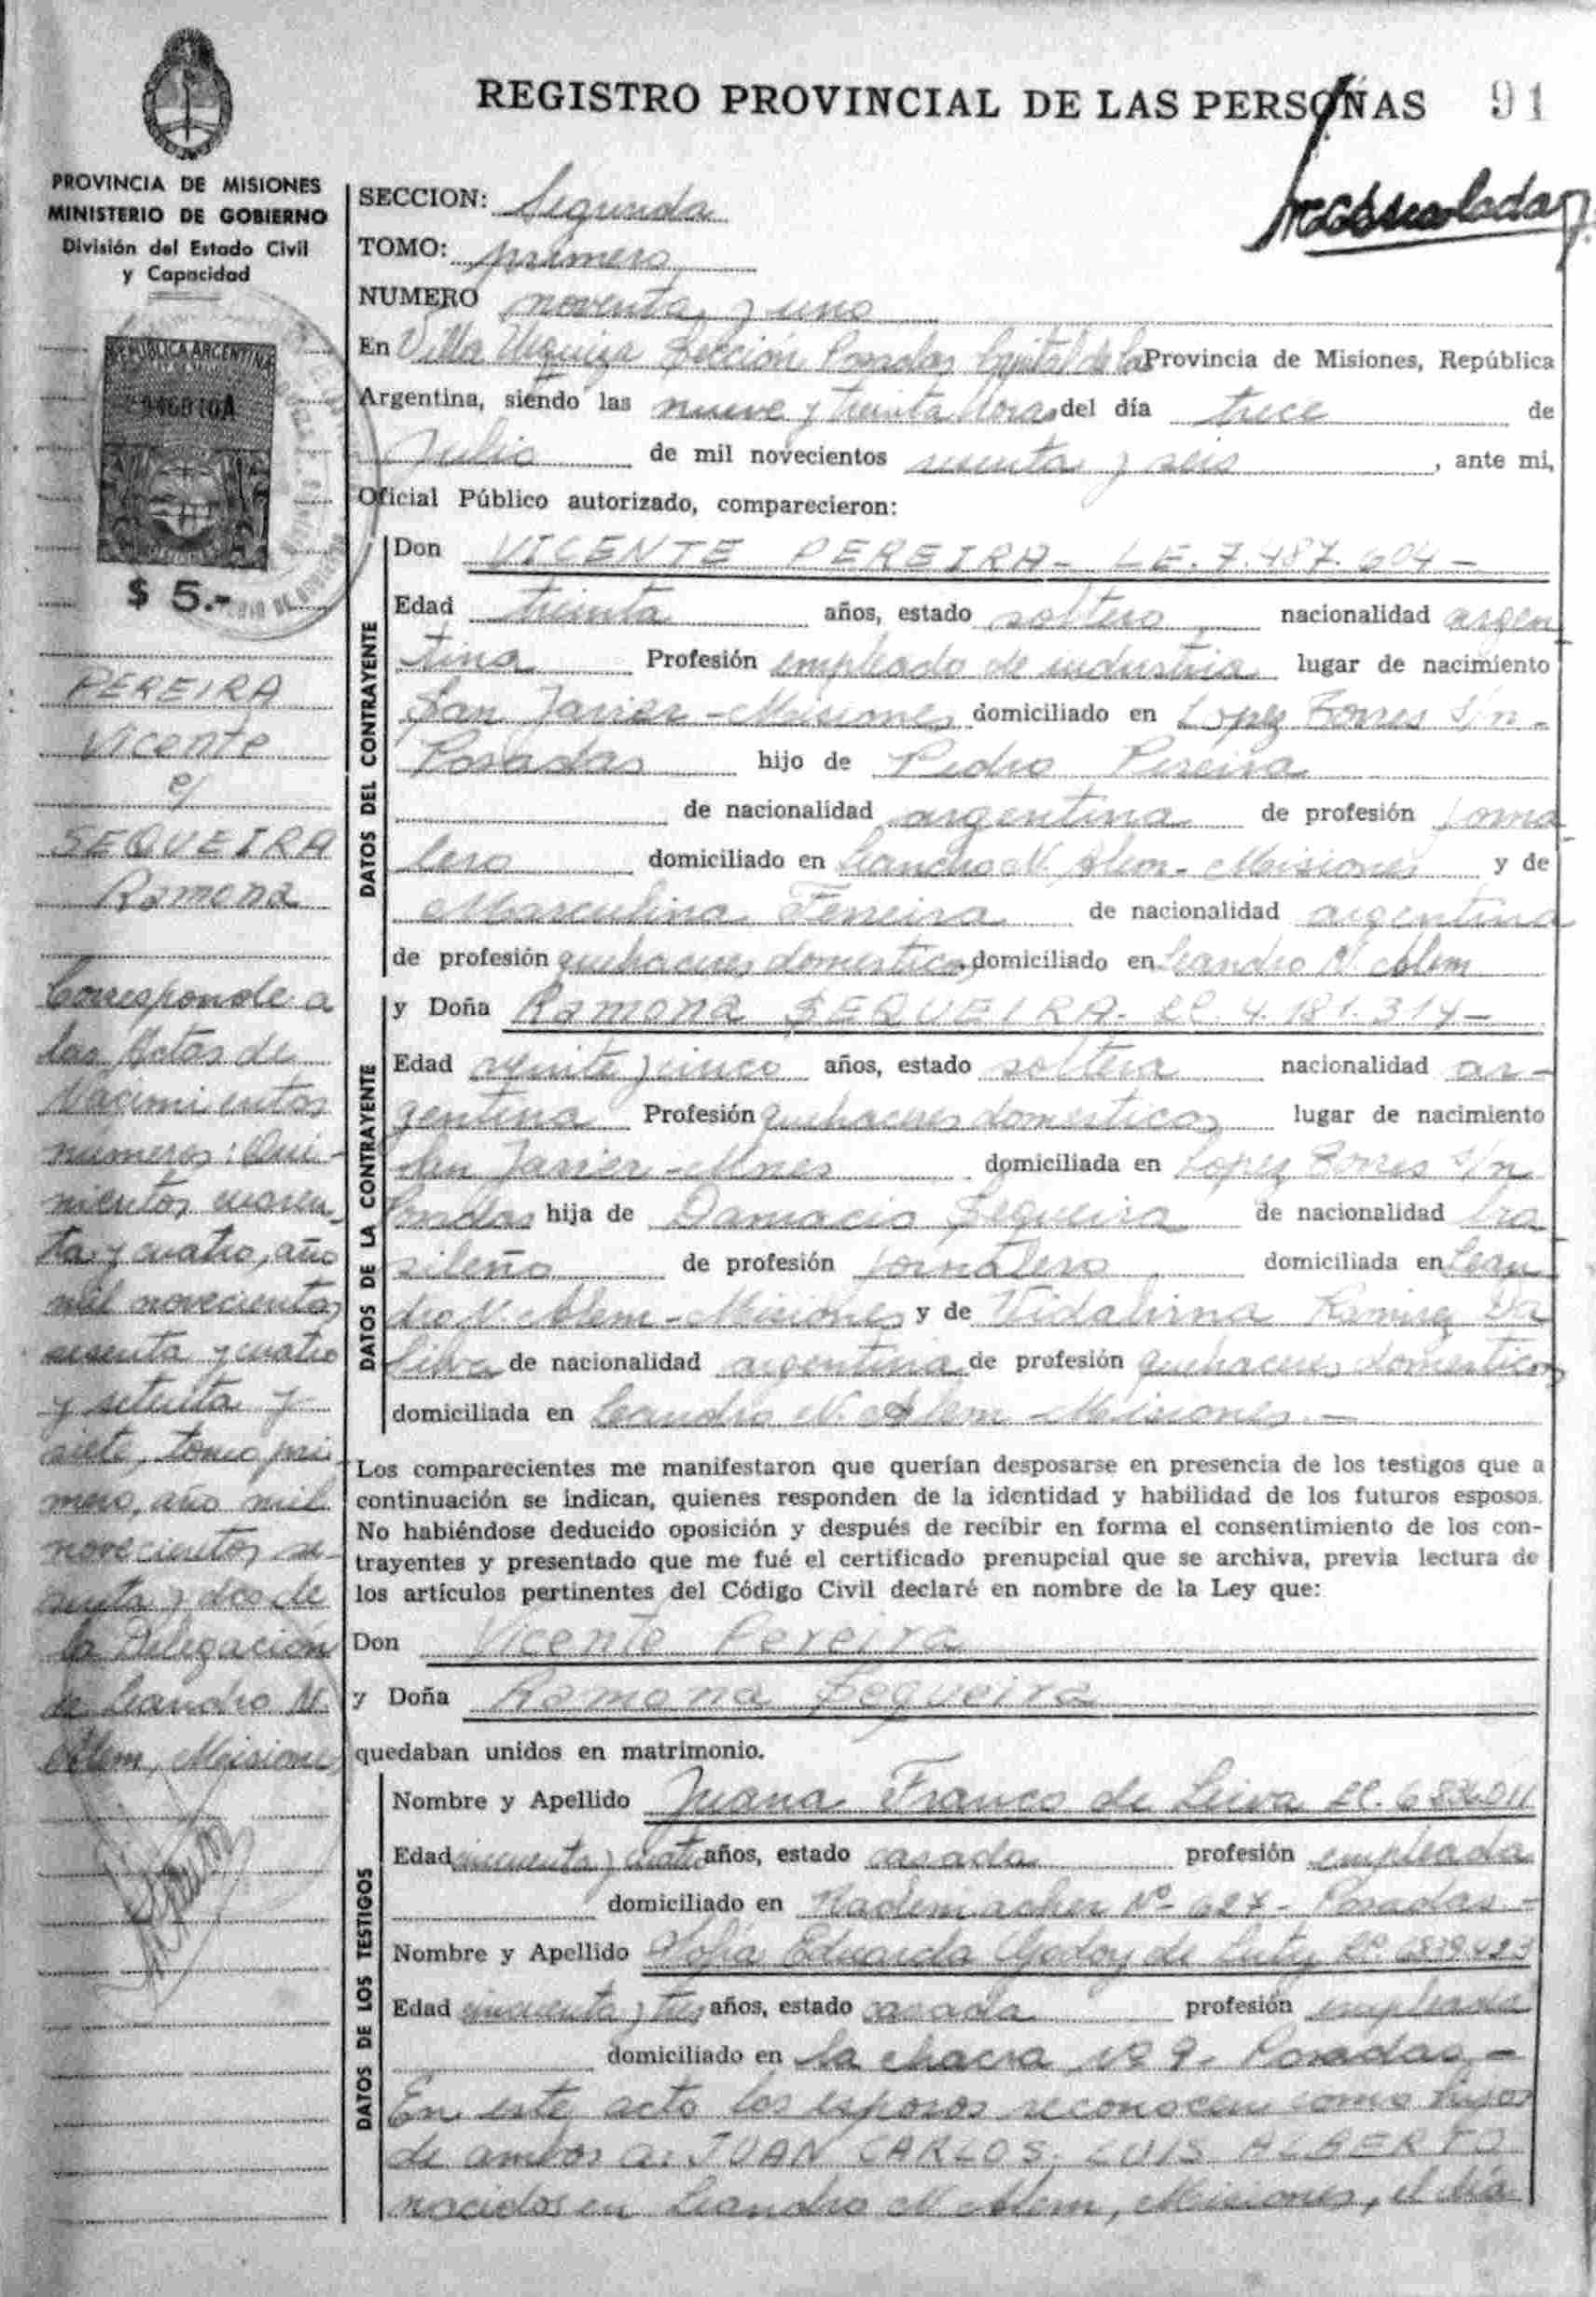 REGISTRO PROVINCIAL DE LAS PERSONAS 91
PROVINCIA DE MISIONES
MINISTERIO DE GOBIERNO
División del Estado Civil
y Capacidad
REPUBLICA ARGENTINA
$ 5.-
SECCION: Segunda
TOMO: primero
NUMERO noventa y uno
En Villa Urquiza Seccion Posadas Capital de la Provincia de Misiones, República
Argentina, siendo las nueve y treinta horas del día trece de
Julio de mil novecientos sesenta y seis, ante mi,
Oficial Público autorizado, comparecieron:
DATOS DEL CONTRAYENTE
Don VICENTE PEREIRA - LE. 7.487.604 -
Edad treinta años, estado soltero nacionalidad argen
tina Profesión empleado de industria lugar de nacimiento
San Javier - Misiones domiciliado en Lopez Torres S/n -
Posadas hijo de Pedro Pereira
de nacionalidad argentina de profesión jorna
lero domiciliado en Leandro N. Alem - Misiones y de
Marculina Ferreira de nacionalidad argentina
de profesión quehaceres domesticos domiciliado en Leandro N. Alem
DATOS DE LA CONTRAYENTE
y Doña Ramona SEQUEIRA - LC. 4.181.314 -
Edad veinte y cinco años, estado soltera nacionalidad ar-
gentina Profesión quehaceres domesticos lugar de nacimiento
San Javier - Mnes domiciliada en Lopez Torres S/n
Posadas hija de Damacio Sequeira de nacionalidad bra
sileño de profesión jornalero domiciliada en Lean
dro N. Alem - Misiones y de Vidalvina Ramirez Da
Silva de nacionalidad argentina de profesión quehaceres domesticos
domiciliada en Leandro N. Alem Misiones. -
Los comparecientes me manifestaron que querían desposarse en presencia de los testigos que a
continuación se indican, quienes responden de la identidad y habilidad de los futuros esposos.
No habiéndose deducido oposición y después de recibir en forma el consentimiento de los con-
trayentes y presentado que me fué el certificado prenupcial que se archiva, previa lectura de
los artículos pertinentes del Código Civil declaré en nombre de la Ley que:
Don Vicente Pereira
y Doña Ramona Sequeira
quedaban unidos en matrimonio.
DATOS DE LOS TESTIGOS
Nombre y Apellido Juana Franco de Leiva LC. 6.834.011
Edad cincuenta y cuatro años, estado casada profesión empleada
domiciliado en Rademacher Nº 627 - Posadas -
Nombre y Apellido Sofia Eduarda Godoy de
Edad cincuenta y tres años, estado casada profesión empleada
domiciliado en la chacra Nº 9 - Posadas -
En este acto los esposos reconocen como hijos
de ambos a: JUAN CARLOS - LUIS ALBERTO
nacidos en Leandro N. Alem, Misiones, el día
PEREIRA
Vicente
c/
SEQUEIRA
Ramona
Corresponde a
las Actas de
Nacimientos
numeros: Qui-
nientos cuaren-
ta y cuatro, año
mil novecientos
sesenta y cuatro
y setenta y
siete, tomo pri-
mero, año mil
novecientos se-
senta y dos de
la Delegación
de Leandro N.
Alem, Misiones